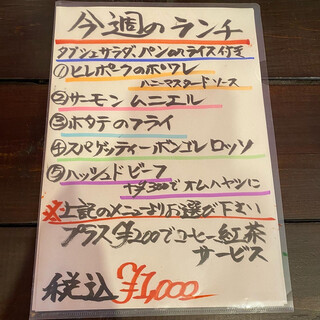 今週のランチ
タブシェサラダ、パンorライス付き
①ヒレポークのポワレ
ハニーマスタードソース
②サーモンムニエル
③ホタテのフライ
④スパゲッティーボンゴレロッソ
⑤ハッシュドビーフ
プラス300でオムハヤシに
※上記のメニューよりお選び下さい
プラス¥200でコーヒー紅茶
サービス
税込¥1,000